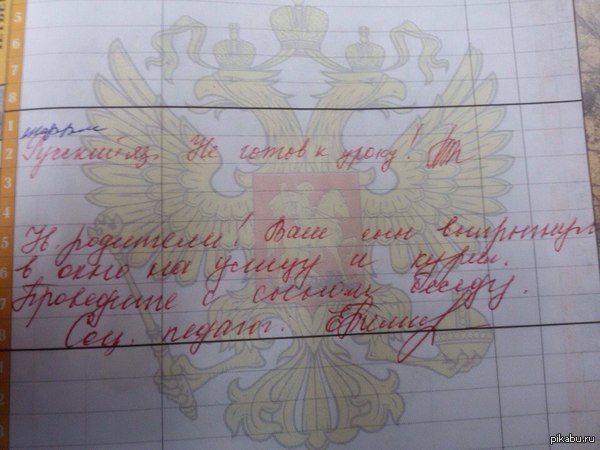 5
6
7
8
1
2
3
4
5
6
7
8
1
Русский яз. Не готов к уроку!
Ув. родители! Ваш сын выпрыгнул
в окно на улицу и курил.
Проведите с сыном беседу.
Соц. педагог.
pikabu.ru